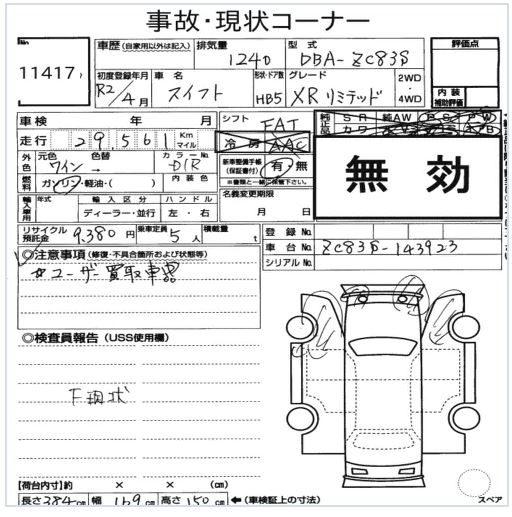 事故・現状コーナー
No. 11417
車歴 (自家用以外は記入) 排気量 1240 型式 DBA-ZC83S 評価点
初度登録年月 R2/4月 車名 スイフト 形状・ドア数 HB5 グレード XRリミテッド 2WD・4WD 内装補助評価
車検 年 月 シフト FAT 純正品 SR 純AW PS PW
走行 29,561 Km マイル 冷房 AAC カワ
外色 元色 ワイン 色替 カラーNo. 内装色 新車整備手帳(保証書付) 有・無 ※書類と一緒に保管下さい。 無効
燃料 ガソリン・軽油・( ) 名義変更期限
輸入車用 年式 輸入区分 ハンドル 月 日
ディーラー・並行 左・右
リサイクル預託金 9,380円 乗車定員 5人 積載量 t 登録No.
◎注意事項 (修復・不具合箇所および状態等) 車台No. ZC83S-143923
☆ユーザー買取車!! シリアルNo.
◎検査員報告 (USS使用欄)
下現状
【荷台内寸】約 × × (cm)
長さ384cm 幅169cm 高さ150cm ←(車検証上の寸法) スペア